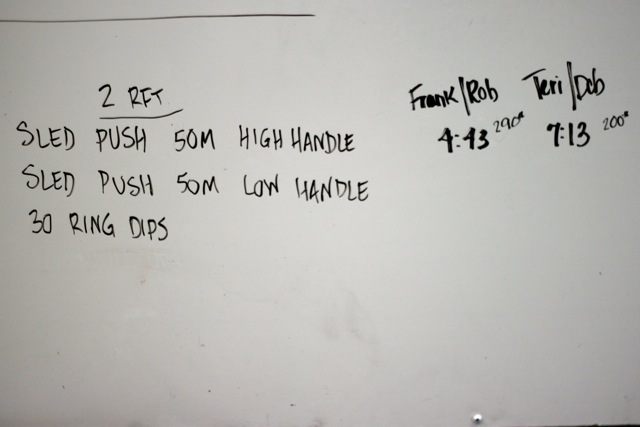 2 RFT
SLED PUSH 50M HIGH HANDLE
SLED PUSH 50M LOW HANDLE
30 RING DIPS
Frank/Rob Teri/Deb
4:43 290# 7:13 200#